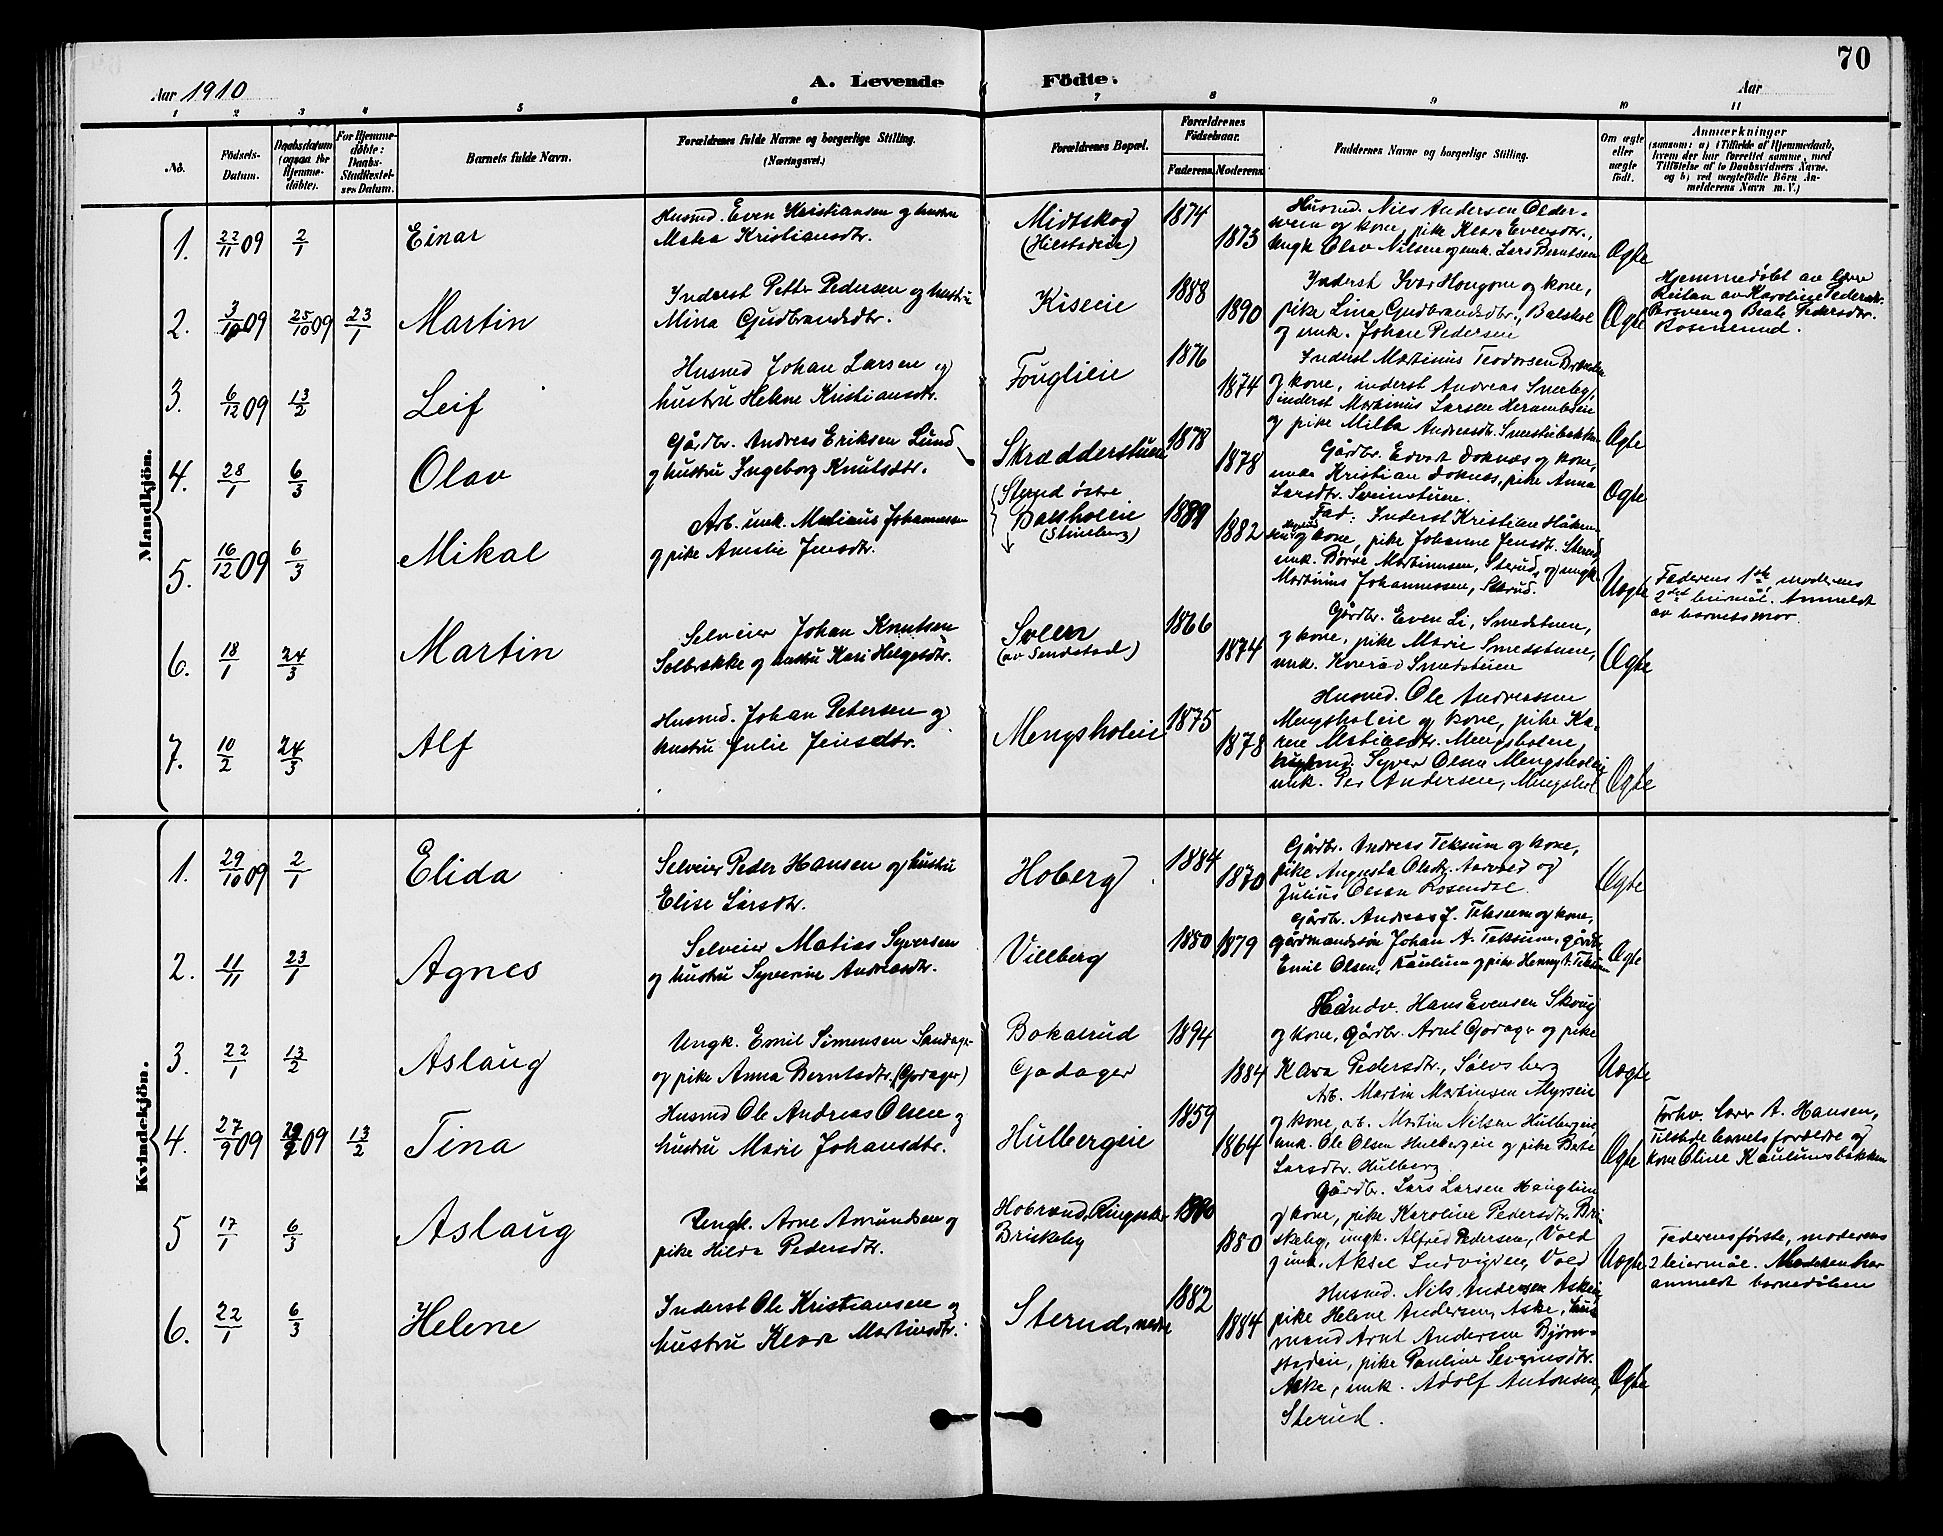 70
Aar 1910
A. Levende Födte.
Aar
1 2 3 4 5 6 7 8 9 10 11
No.
Födsels-Datum.
Daabsdatum (ogsaa for Hjemmedöbte).
For Hjemmedöbte: Daabs-Stadfæstelses Datum.
Barnets fulde Navn.
Forældrenes fulde Navne og borgerlige Stilling.
(Næringsvei.)
Forældrenes Bopæl.
Forældrenes Födselsaar.
Faderens. Moderens.
Faddernes Navne og borgerlige Stilling.
Om ægte eller uægte födt.
Anmærkninger
(saasom: a) i Tilfælde af Hjemmedaab, hvem der har forrettet samme, med Tilföielse af to Daabsvidners Navne, og b) ved uægtefödte Börn Anmelderens Navn m. V.)
Mandkjön.
1. 22/11 09 2/1 Einar
Husmd. Even Kristiansen og hustru
Maha Kristiansdtr.
Midtskog
(Hilstadeie)
1874 1873
Husmd. Nils Andersen Older-
svein og kone, pike Klara Evensdtr.,
ungk Olav Nilsen og umk. Lars Berntsen
Ægte
2. 3/10 09 25/10 09 23/1 Martin
Inderst Petter Pedersen og hustru
Mina Gudbrandsdtr.
Kiseie
1888 1890
Inderst Ivar Hougom og kone,
pike Lina Gudbrandsdtr., Balskol
og umk. Johan Pedersen
Ægte
Hjemmedøbt av lærer
Reitan av Karoline Pedersdtr.
og Beate Pedersdtr.
Rosenlund.
3. 6/12 09 13/2 Leif
Husmd Johan Larsen og
hustru Helene Kristiansdtr.
Fouglieie
1876 1874
Inderst Martinus Teodorsen
og kone, inderst Andreas Smeby,
inderst Martinus Larsen
og pike Milla Andreasdtr.
Ægte
4. 28/1 6/3 Olav
Gårdbr. Andreas Eriksen Lund
og hustru Ingeborg Knutsdtr.
Skrædderstuen
1878 1878
Gårdbr. Edvart Doknæs og kone,
umk Kristian Doknæs, pike Anna
Larsdtr. Sveinstuen.
Ægte
5. 16/12 09 6/3 Mikal
Arb. umk. Matiaus Johannessen
og pike Amalie Jensdtr.
Sterud østre
Balsholeie
(Stineberg)
1889 1882
Fad: Inderst Kristian Håken-
og kone, pike Johanne Jensdtr. Sterud,
umk. Børre Martinusen, Sterud, og ungk.
Martinius Johannessen, Sterud.
Uægte
Faderens 1ste moderens
2det leiermål. Anmeldt
av barnets mor
6. 18/1 24/3 Martin
Selveier Johan Knutsen
Solbrække og hustru Kari Helgesdtr.
Sveen
(av Sendstad)
1866 1874
Gårdbr. Even Li, Smedstuen,
og kone, pike Marie Smedstuen,
umk. Konrad Smedstuen
Ægte
7. 10/2 24/3 Alf
Husmd. Johan Petersen og
hustru Julie Jensdtr.
Mengsholeie
1875 1878
Husmd. Ole Andreassen
Mengsholeie og kone, pike Ka-
rene Matiasdtr. Mengsholeie,
Syver Olsen Mengsholeie
umk. Per Andersen, Mengshol.
Ægte
Kvindekjön.
1. 29/10 09 2/1 Elida
Selveier Peder Hansen og hustru
Elise Larsdtr.
Hoberg
1884 1870
Gårdbr. Andreas Teksum og kone,
pike Augusta Olsdtr. og
Julius Olsen Rosendal.
Ægte
2. 11/11 23/1 Agnes
Selveier Matias Syversen
og hustru Syverine Andreasdtr.
Villberg
1880 1879
Gårdbr. Andreas J. Teksum og kone,
gårdmandssøn Johan A. Teksum, gårdbr.
Emil Olsen, Kaulum og pike Henny A. Teksum
Ægte
3. 22/1 13/2 Aslaug
Ungk. Emil Simensen Sandager
og pike Anna Berntsdtr. (Godager)
Bokalrud
Godager
1894 1884
Håndv. Hans Evensen Skoug
og kone, Gårdbr. Arnt Godager og pike
Klara Pedersdtr., Sølvsberg
Uægte
4. 27/9 09 29/9 09 13/2 Tina
Husmd Ole Andreas Olsen og
hustru Marie Johansdtr.
Hulbergeie
1859 1864
Arb. Martin Martinsen Myrseie
og kone, arb. Martin Nilsen Hulbergeie
umk. Ole Olsen Hulbergeie og pike Berte
Larsdtr. Hulberg
Ægte
Forhv. lærer A. Hansen,
Tilstede barnets forældre og
kone Oline Kaulumsbakken
5 17/1 6/3 Aslaug
Ungk. Arne Amundsen og
pike Hilda Pedersdtr.
Hobrand, Ringsaker
Briskeby
1880 1880
Gårdbr. Lars Larsen Hauglien
og kone, pike Karoline Pedersdtr. Bri-
skeby, ungk. Alfred Pedersen, Vold
og umk. Aksel Ludvigsen, Vold
Uægte
Faderens første, moderens
2 leiermål. Moderen har
anmeldt barnedåben
6. 22/1 6/3 Helene
Inderst Ole Kristiansen og
hustru Klara Martinsdtr.
Sterud, nedre
1882 1884
Husmd. Nils Andersen Askeie,
pike Helene Andersen, Aske, hus-
mand Arnt Andersen Bjørn-
stadeie, pike Pauline Severinsdtr.
Aske, umk. Adolf Antonsen,
Sterud.
Ægte